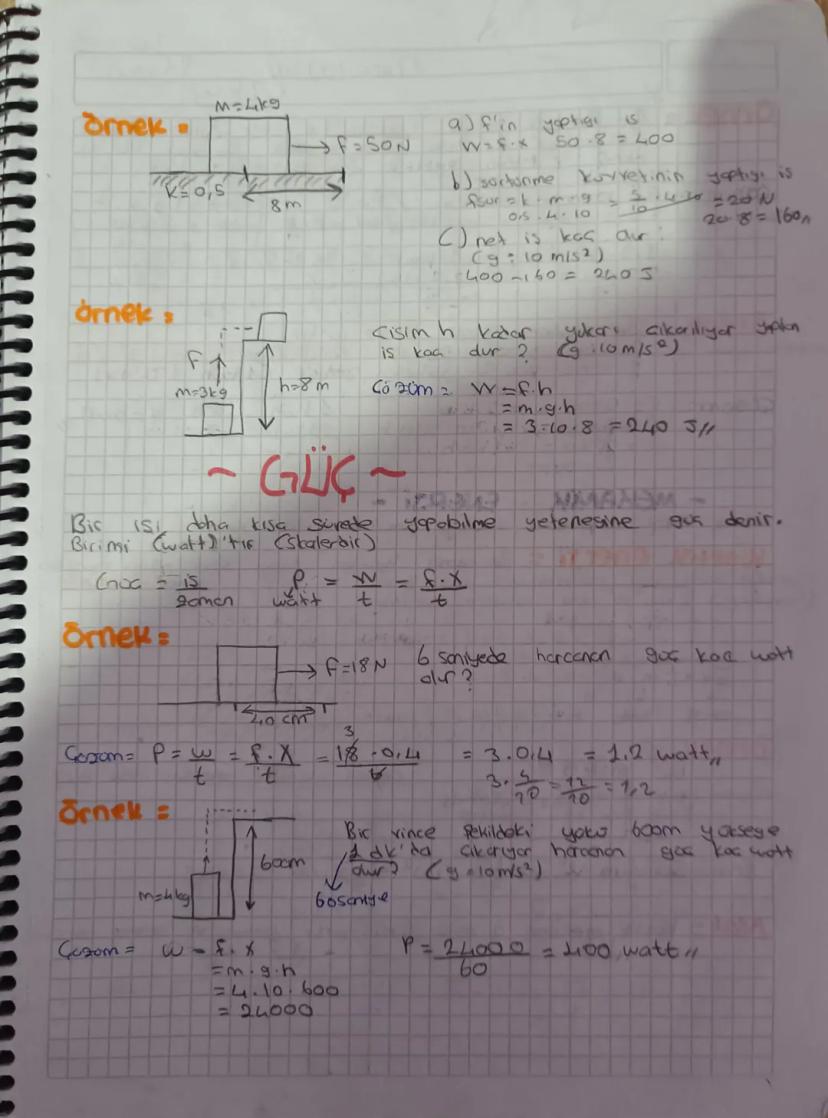 Örnek =
m=4kg
f=50N
k=0,5
8m
a) f'in yaptığı iş
W=f.x 50.8=400
b) sürtünme kuvvetinin yaptığı iş
fsür=k.m.g = 5/10.4.10 =20N
0,5.4.10 20.8=160
c) net iş kaç dur.
(g=10m/s²)
400-160=240J
örnek =
Cisim h kadar yukarı çıkarılıyor yapılan
iş kaç dur? (g:10m/s²)
F
m=3kg
h=8m
Çözüm= W=f.h
=m.g.h
=3.10.8=240 J//
~ GÜÇ ~
Bir işi daha kısa sürede yapabilme yetenegine güç denir.
Birimi (watt)'tır (Skalerdir)
Güç = iş/zaman P = W/t = f.x/t
watt
Örnek =
f=18N
6 saniyede harcanan güç kaç watt
dır?
40 cm
Çözüm= P = w/t = f.x/t = 18.0,4/6 = 3.0,4 = 1,2 watt//
3
3.4/10=12/10=1,2
Örnek =
Bir vince şekildeki yükü 600m yükseğe
1 dk'da çıkarıyor harcanan güç kaç watt
dur? (g=10m/s²)
60saniye
600m
m=4kg
Çözüm= W=f.x
=m.g.h
=4.10.600
=24000
P=24000/60=400 watt//